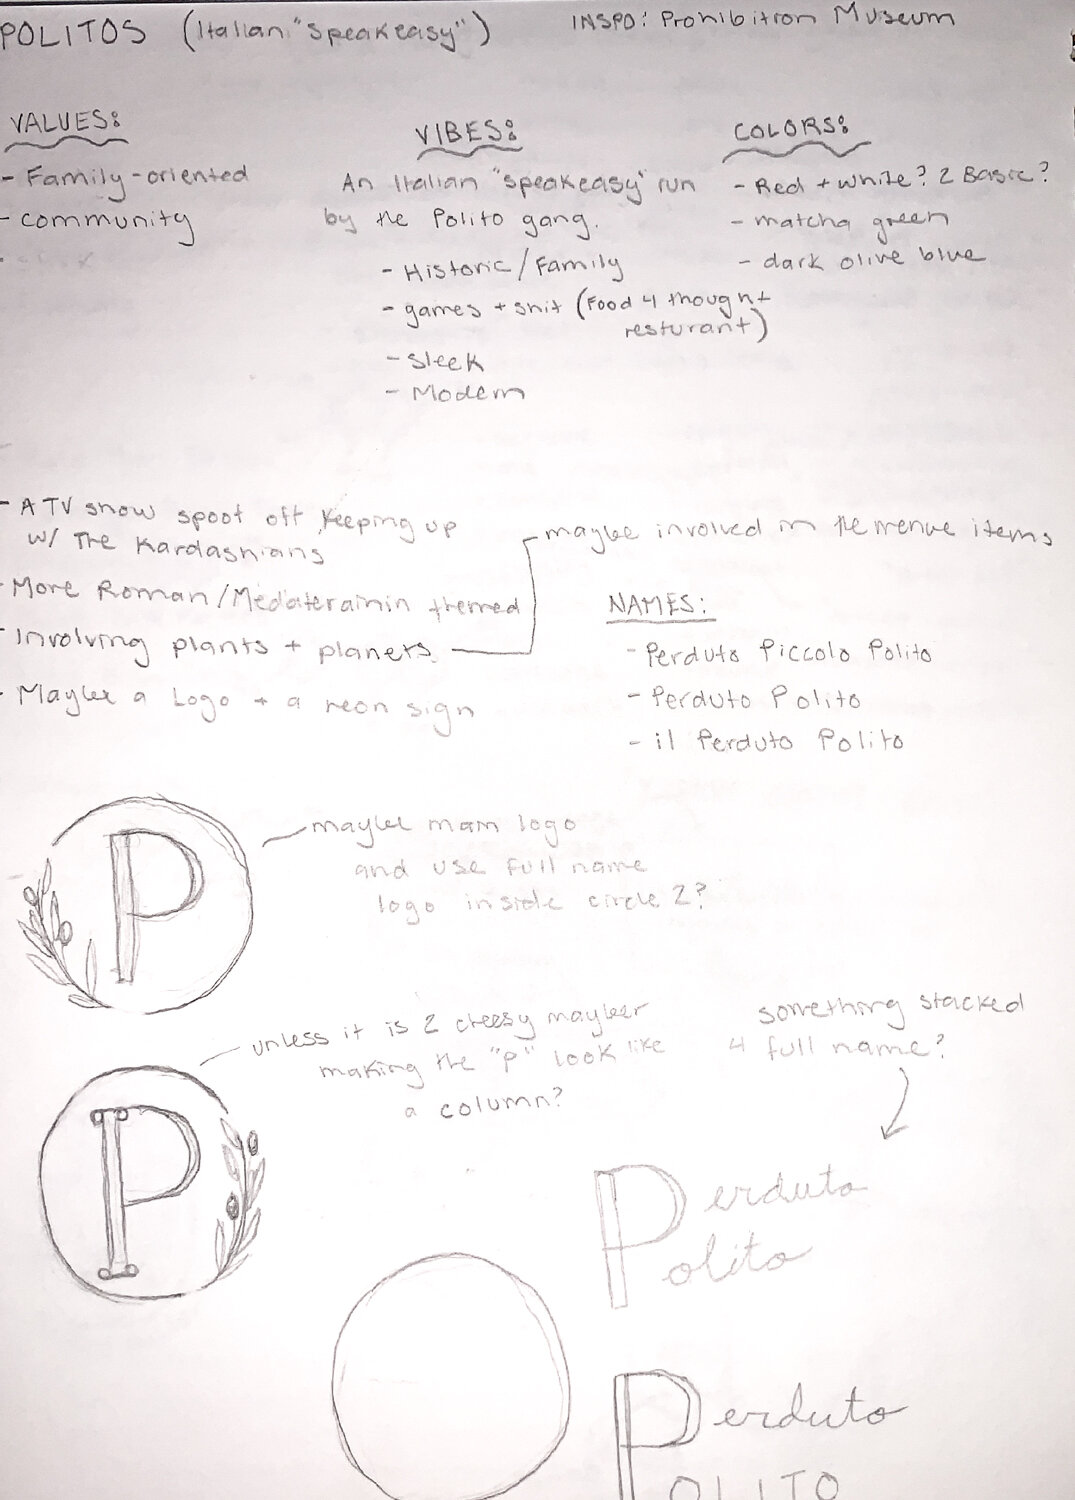 POLITOS (Italian "speakeasy")
INSPO: Prohibition Museum
VALUES:
- Family-oriented
- community
VIBES:
An Italian "speakeasy" run
by the Polito gang.
- Historic/Family
- games + shit (Food 4 thought
resturant)
- Sleek
- Modern
COLORS:
- Red + white? 2 Basic?
- matcha green
- dark olive blue
- A TV show spoof off Keeping up
w/ The Kardashians
- More Roman/Medaterainin themed
- Involving plants + planets
- Maybe a Logo + a neon sign
maybe involved in the menue items
NAMES:
- Perduto Piccolo Polito
- Perduto Polito
- il Perduto Polito
P
maybe main logo
and use full name
logo inside circle 2?
unless it is 2 cheesy maybe
making the "P" look like
a column?
P
something stacked
4 full name?
Perduto
Polito
Perduto
POLITO